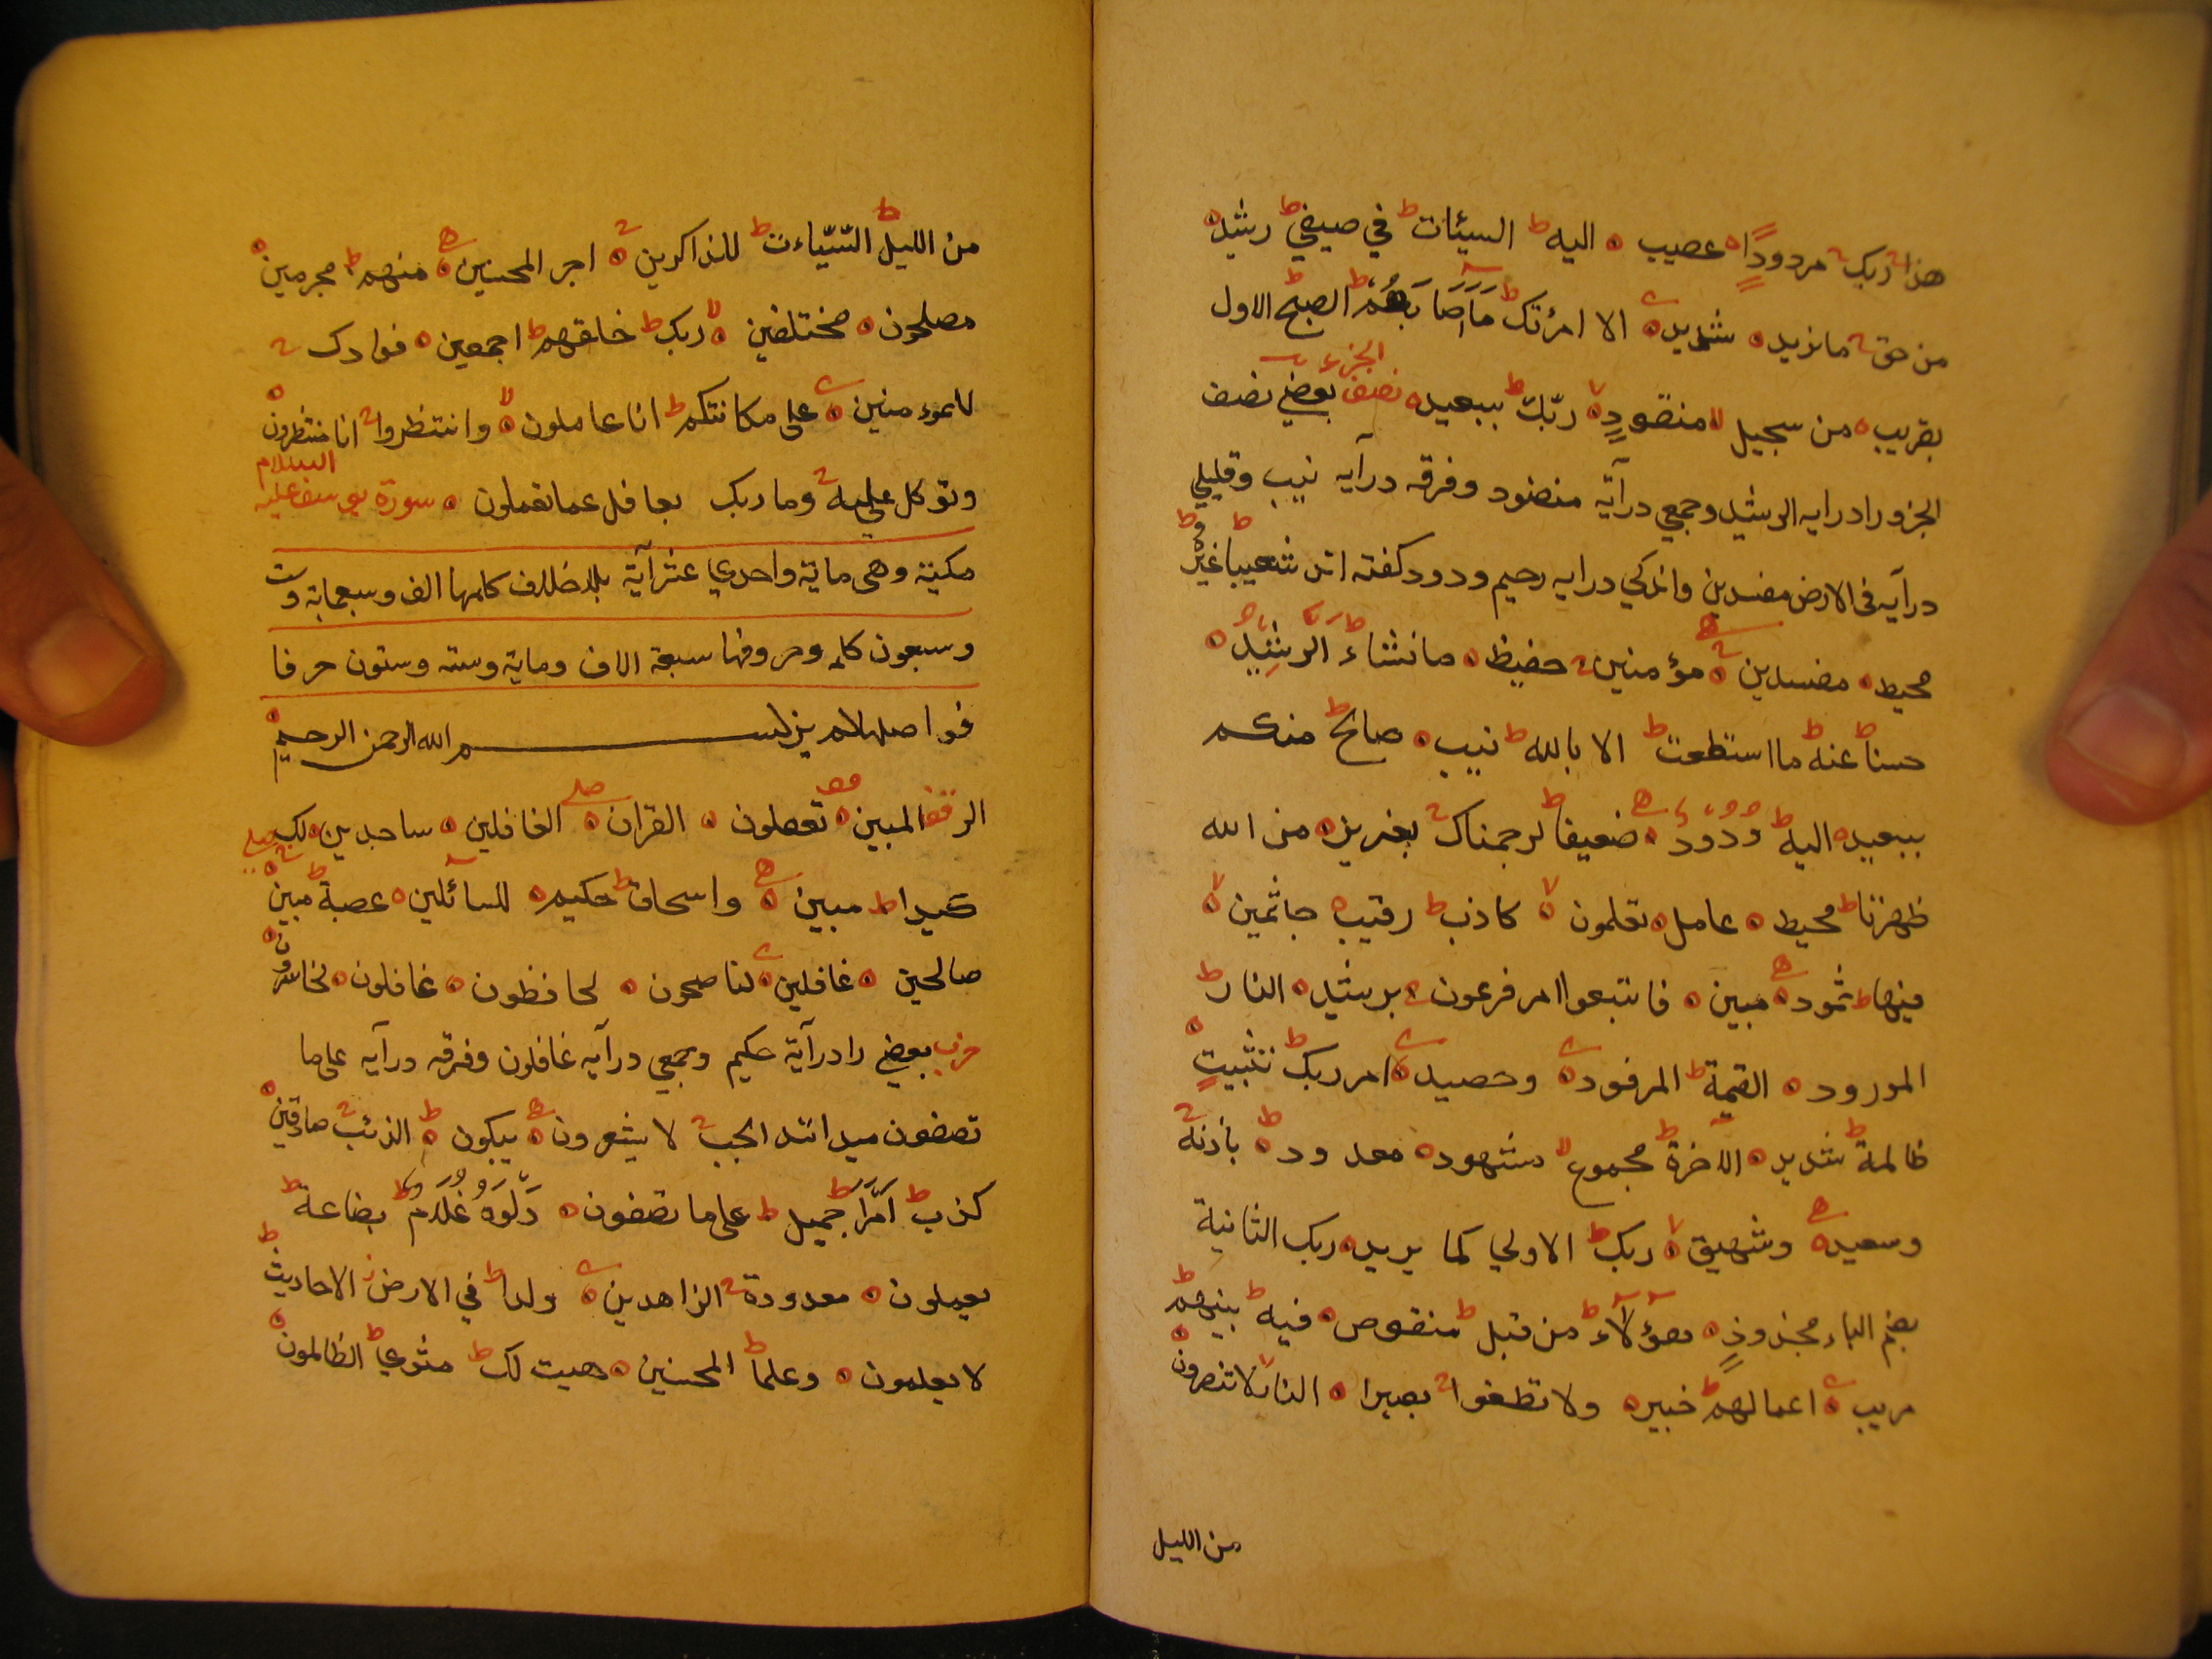 هذا ربك مردود عصيب اليه السيئات في ضيفي رشيد
من حق ما نريد شديد الا امرئتك ما اصابهم الصبح الاول
بقريب من سجيل منضود ربك ببعيد نصف الجزء بعضي نصف
الجزو را درايه الرشيد وجمعي درآية منضود وفرقه درآيه نيب وقليلي
درآيه فى الارض مفسدين واندكي درايه رحيم ودود كفته اند شعيبا غيره
محيط مفسدين مؤمنين حفيظ ما نشاء الرشيد
حسنا عنه ما استطعت الا بالله نيب صالح منكم
ببعيد اليه ودود ضعيفا لرجمناك بعزيز من الله
ظهريا محيط عامل تعلمون كاذب رقيب جاثمين
فيها ثمود مبين فاتبعوا امر فرعون برشيد النار
المورود القيمة المرفود وحصيد امر ربك تتبيب
ظالمة شديد الآخرة مجموع مشهود معدود باذنه
وسعيد وشهيق ربك الاولي كما يريد ربك الثانية
بضم الباء مجذوذ هؤلاء من قبل منقوص فيه بينهم
مريب اعمالهم خبير ولا تطغوا بصيرا النار لا تنصرون
من الليل
من الليل السّيّاءت للذاكرين اجر المحسنين منهم مجرمين
مصلحون مختلفين ربك خلقهم اجمعين فوادك
للموءمنين على مكانتكم انا عاملون وانتظروا انا منتظرون
وتوكل عليه وما ربك بغافل عما تعملون سورة يوسف عليه السلام
مكية وهى ماية واحدي عشر آية بلا خلاف كلمها الف وسبعماية وست
وسبعون كلمه وحروفها سبعة الاف وماية وسته وستون حرفا
فواصلها لم نر بسم الله الرحمن الرحيم
الر قف المبين تعقلون القران الغافلين ساجدين لك
كيدا مبين واسحاق حكيم للسآئلين عصبة مبين
صالحين غافلين لناصحون لحافظون غافلون لخاسرون
حزب بعضي را درآية حكيم وجمعي درآيه غافلون وفرقه درآيه على ما
تصفون ميدانند الجب لا يشعرون يبكون الذئب صادقين
كذب امرا جميل على ما تصفون دلوه غلام بضاعة
يعملون معدودة الزاهدين ولدا في الارض الاحاديث
لا يعلمون وعلما المحسنين هيت لك مثوي الظالمون